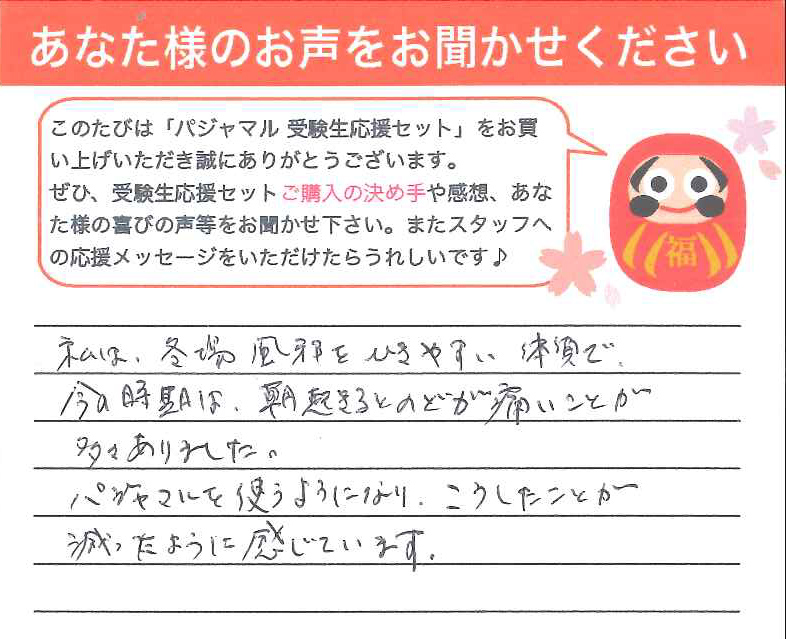 あなた様のお声をお聞かせください
このたびは「パジャマル 受験生応援セット」をお買
い上げいただき誠にありがとうございます。
ぜひ、受験生応援セットご購入の決め手や感想、あな
た様の喜びの声等をお聞かせ下さい。またスタッフへ
の応援メッセージをいただけたらうれしいです♪
福
私は、冬場風邪をひきやすい体質で、
今の時期は、朝起きるとのどが痛いことが
多々ありました。
パジャマルを使うようになり、こうしたことが
減ったように感じています。